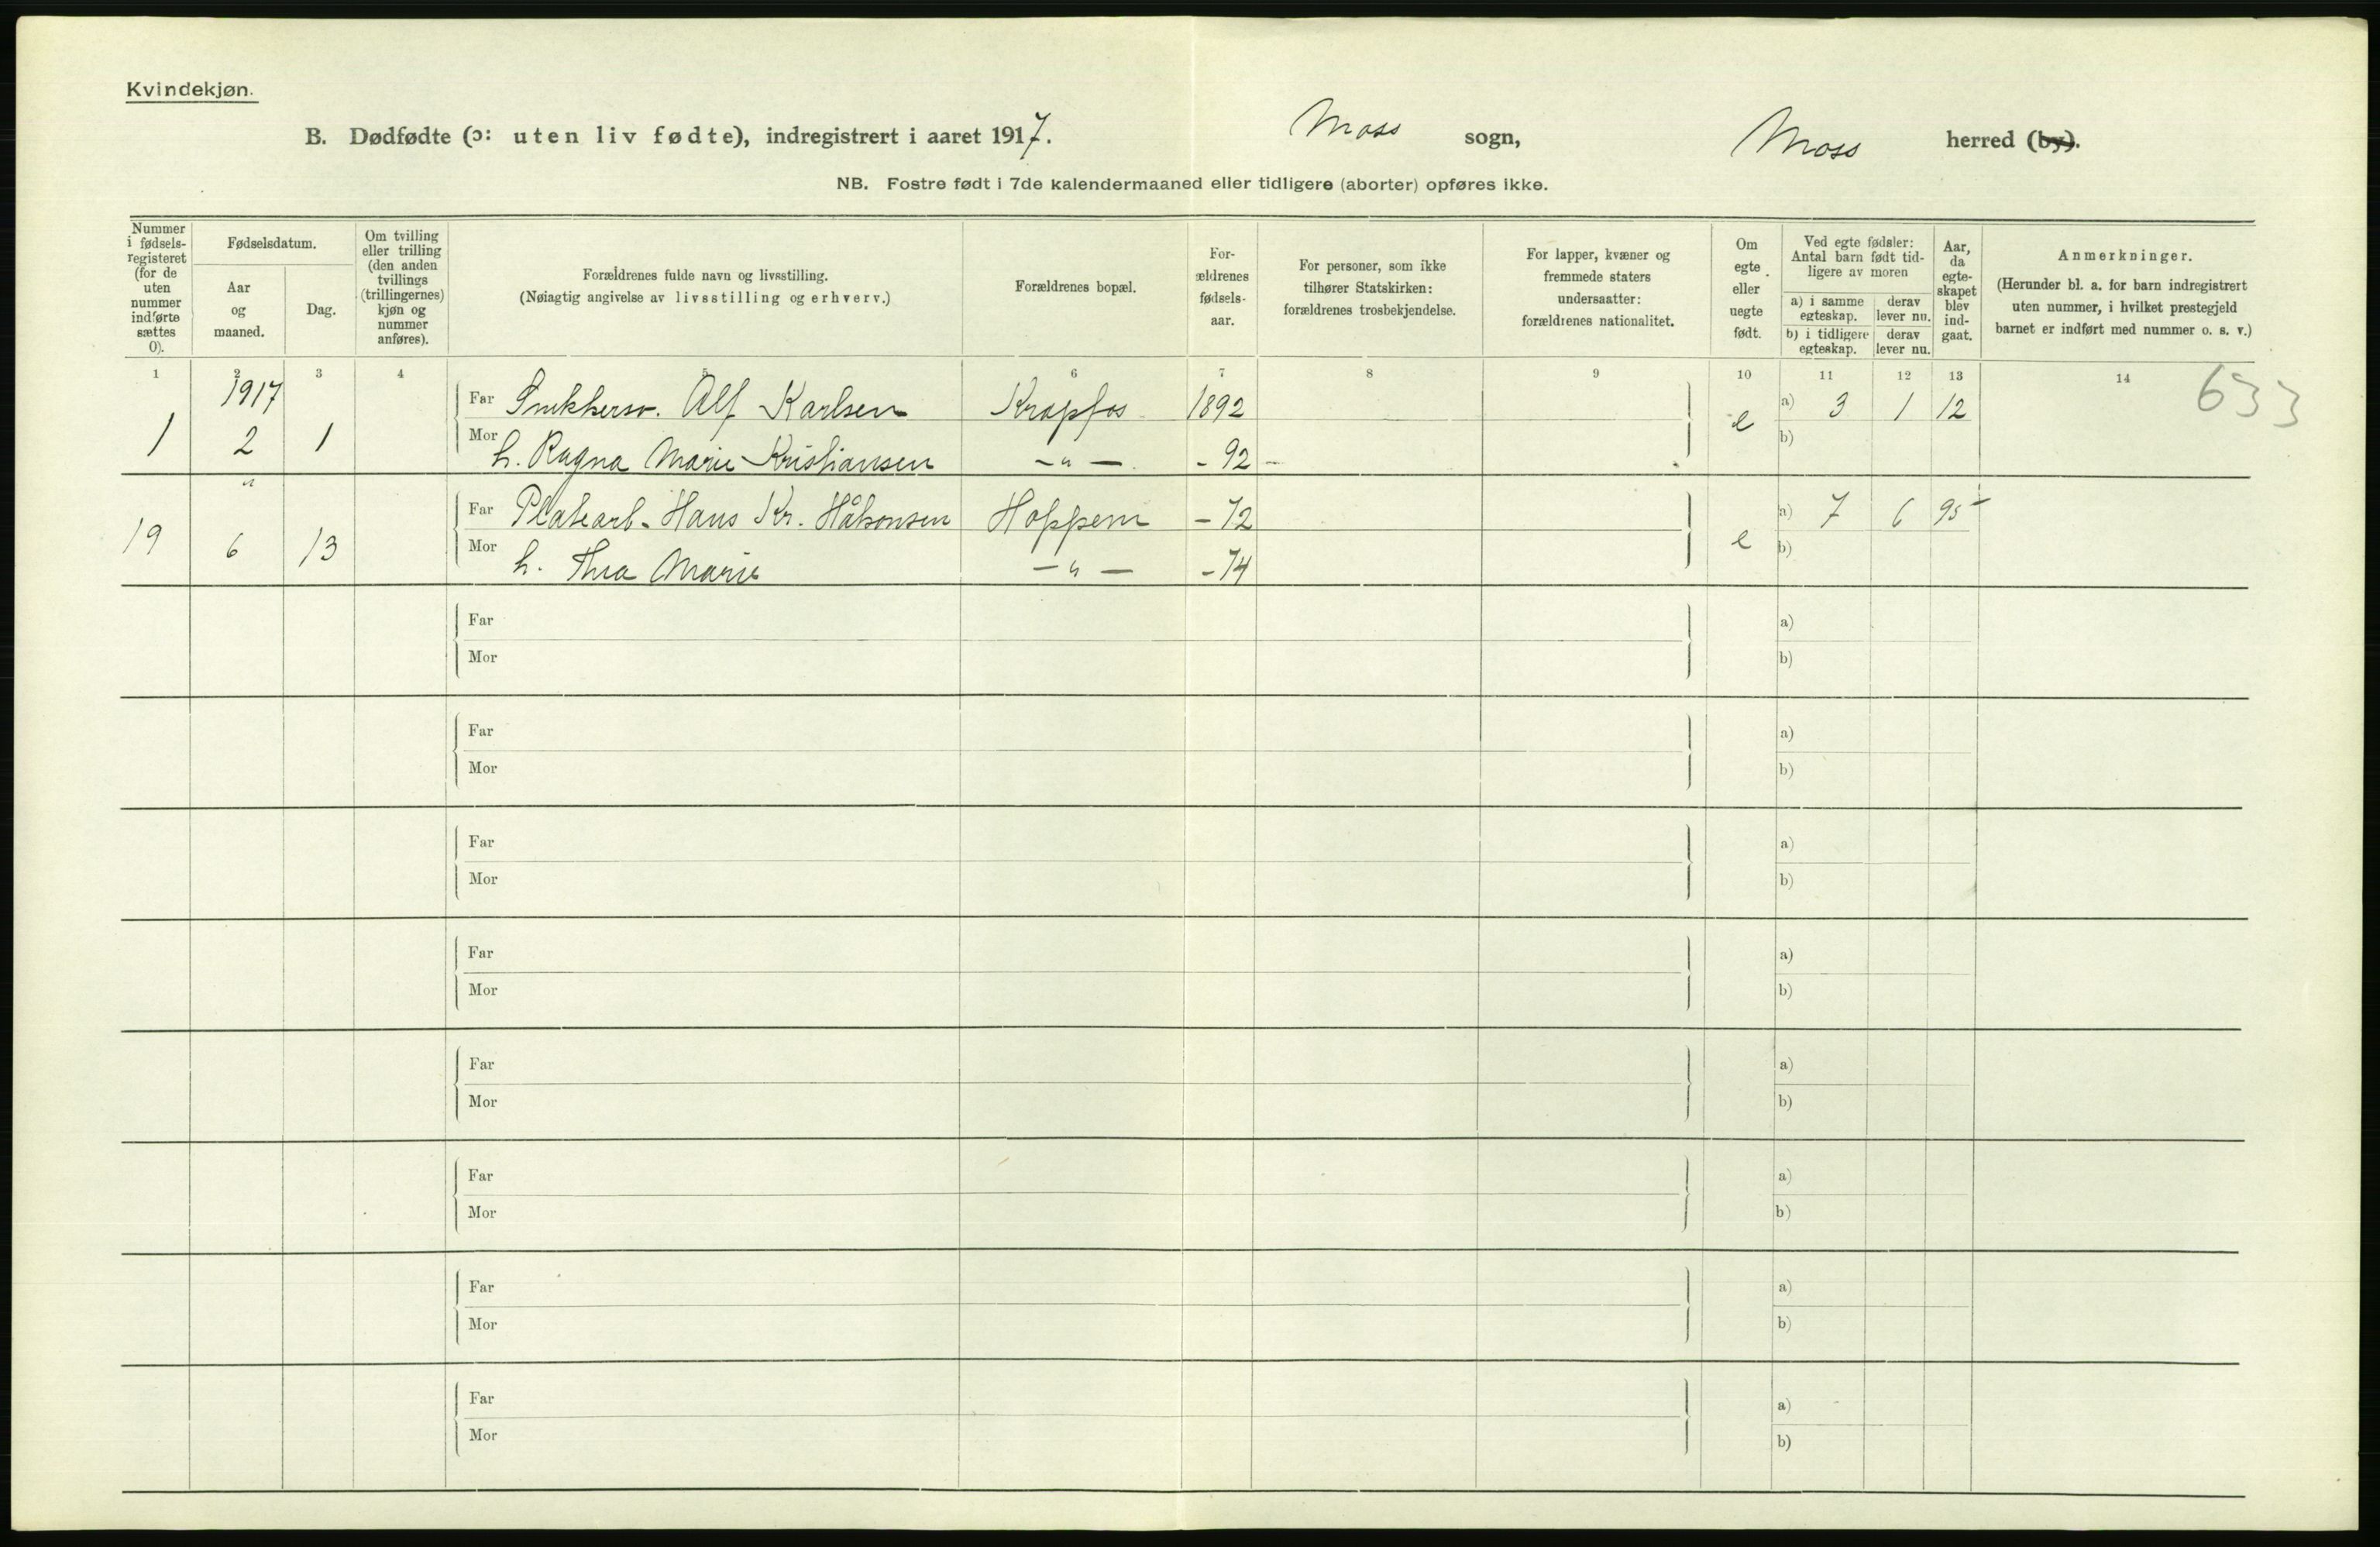 Kvindekjøn.
B. Dødfødte (ɔ: uten liv fødte), indregistrert i aaret 1917. Moss sogn, Moss herred (by).
NB. Fostre født i 7de kalendermaaned eller tidligere (aborter) opføres ikke.
Nummer i fødselsregisteret (for de uten nummer indførte sættes 0).
Fødselsdatum.
Aar og maaned.
Dag.
Om tvilling eller trilling (den anden tvillings (trillingernes) kjøn og nummer anføres).
Forældrenes fulde navn og livsstilling.
(Nøiagtig angivelse av livsstilling og erhverv.)
Forældrenes bopæl.
Forældrenes fødselsaar.
For personer, som ikke tilhører Statskirken: forældrenes trosbekjendelse.
For lapper, kvæner og fremmede staters undersaatter: forældrenes nationalitet.
Om egte eller uegte født.
Ved egte fødsler: Antal barn født tidligere av moren
a) i samme egteskap. derav lever nu.
b) i tidligere egteskap. derav lever nu.
Aar, da egteskapet blev indgaat.
Anmerkninger.
(Herunder bl. a. for barn indregistrert uten nummer, i hvilket prestegjeld barnet er indført med nummer o. s. v.)
1 2 3 4 5 6 7 8 9 10 11 12 13 14
633
1917
Far Snekkersv. Alf Karlsen Krapfos 1892 a) 3 1 12
1 2 1 e
Mor h. Ragna Marie Kristiansen -"- - 92 - b)
"
Far Platearb. Hans Kr. Håkonsen Hoppern - 72 a) 7 6 95
19 6 13 e
Mor h. Thea Marie -"- - 74 b)
Far a)
Mor b)
Far a)
Mor b)
Far a)
Mor b)
Far a)
Mor b)
Far a)
Mor b)
Far a)
Mor b)
Far a)
Mor b)
Far a)
Mor b)